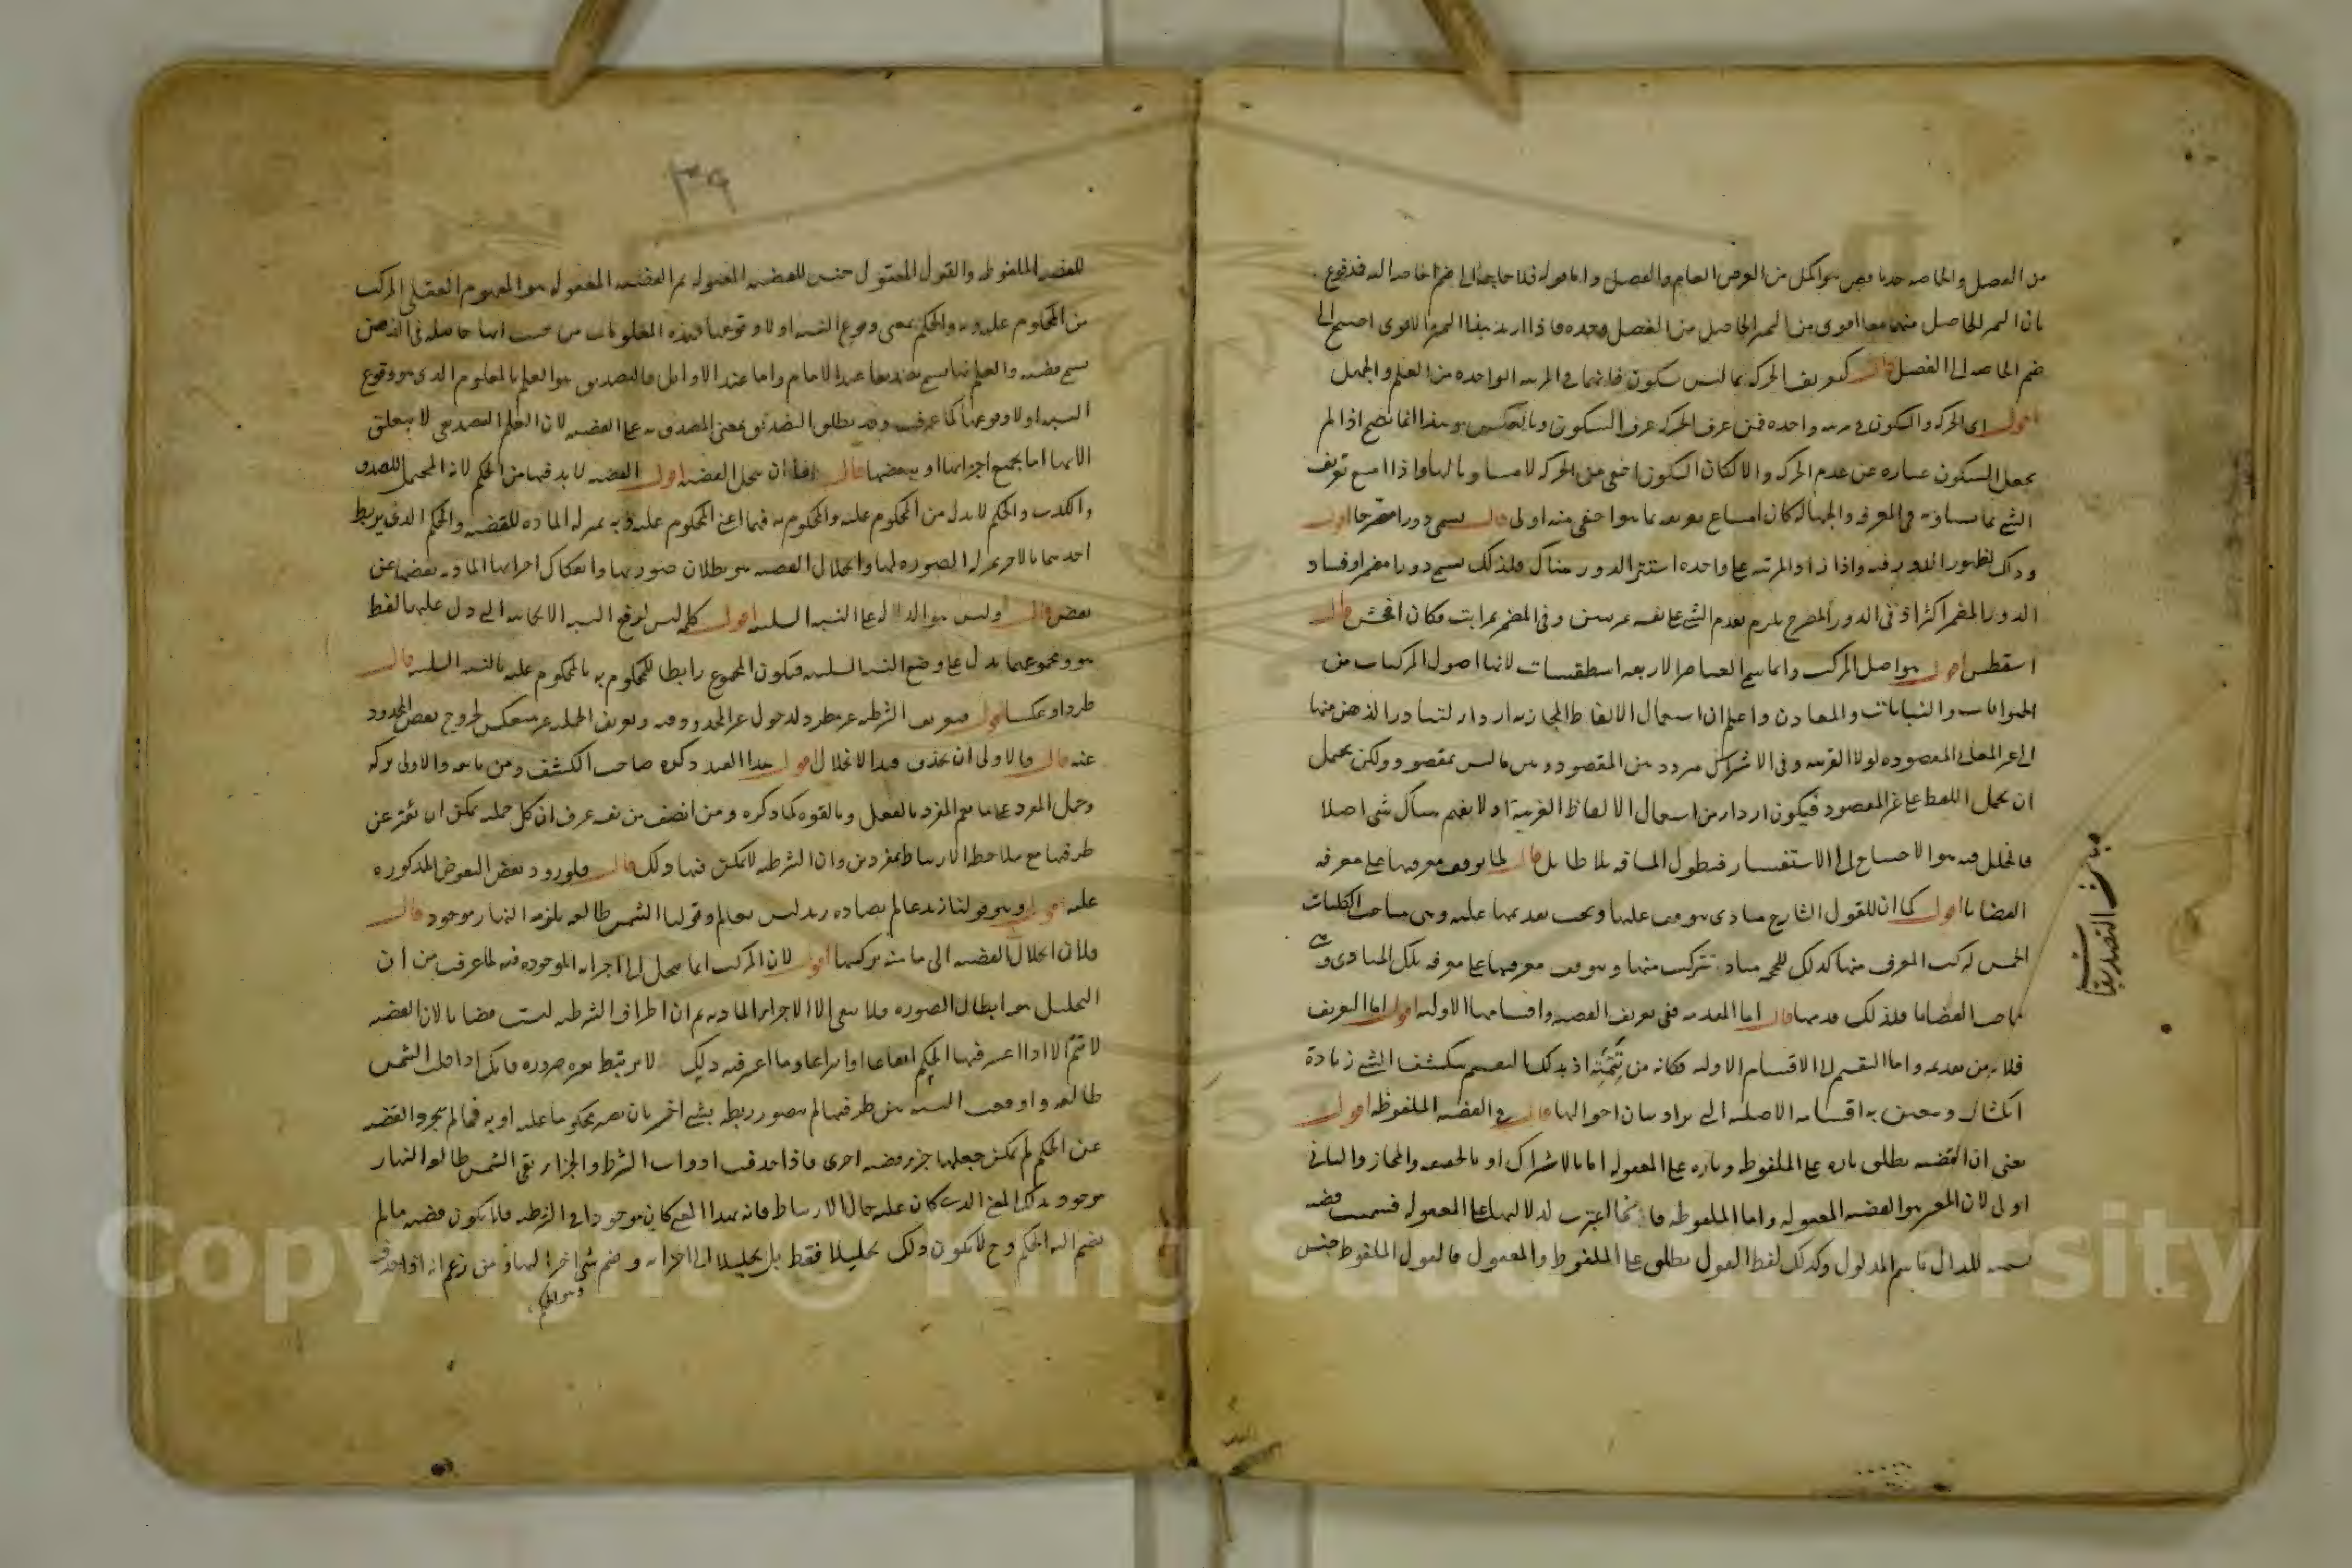 من الفصل والخاصة حدا ناقصا هو اكمل من العرض العام والفصل واما قوله فلا حاجة الى ضم الخاصة اليه فمدفوع
بان التميز الحاصل منهما معا اقوى من التميز الحاصل من الفصل وحده فاذا اريد هذا التميز الاقوى احتيج الى
ضم الخاصة الى الفصل قال كتعريف الحركة بما ليس بسكون فانهما في المرتبة الواحدة من العلم والجهل
اقول اى الحركة والسكون في مرتبة واحدة فمن عرف الحركة عرف السكون وبالعكس وهذا انما يصح اذا لم
يجعل السكون عبارة عن عدم الحركة والا لكان السكون اخفى من الحركة لا مساويا لها واذا امتنع تعريف
الشئ بما يساويه في المعرفة والجهالة كان امتناع تعريفه بما هو اخفى منه اولى قال يسمى دورا مصرحا اقول
وذلك لظهور الدور فيه واذا زاد المرتبة على واحدة استتر الدور هناك فلذلك يسمى دورا مضمرا وفساد
الدور المضمر اكثر اذ في الدور المصرح يلزم تقدم الشئ على نفسه بمرتبتين وفي المضمر بمراتب فكان افحش قال
اسقطس اقول هو اصل المركب وانما سمى العناصر الاربعة اسطقسات لانها اصول المركبات من
الحيوانات والنباتات والمعادن واعلم ان استعمال الالفاظ المجازية اردأ لتبادر الذهن منها
الى غير المعانى المقصودة لولا القرينة وفى الاشتراك تردد بين المقصود وبين ما ليس بمقصود ولكن يحتمل
ان يحمل اللفظ على غير المقصود فيكون اردأ من استعمال الالفاظ الغريبة اذ لا يفهم هناك شئ اصلا
فالخلل فيه هو الاحتياج الى الاستفسار فيطول المسافة بلا طائل قال لما توقف معرفتها على معرفة
القضايا اقول كما ان للقول الشارح مبادى يتوقف عليها ويجب تقديمها عليه وهى مباحث الكليات
الخمس لتركب المعرف منها كذلك للحجة مباد تتركب منها ويتوقف معرفتها على معرفة تلك المبادى وهى
مباحث القضايا فلذلك قدمها قال اما المقدمة ففى تعريف القضية واقسامها الاولية اقول اما التعريف
فلا بد من تقديمه واما التقسيم الى الاقسام الاولية فكانه من تتمته اذ بذلك التقسيم ينكشف الشئ زيادة
انكشاف ويتعين به اقسامه الاصلية التى يراد بيان احوالها قال في القضية الملفوظة اقول
يعنى ان القضية تطلق تارة على الملفوظ وتارة على المعقولة اما بالاشتراك او بالحقيقة والمجاز والثانى
اولى لان المعتبر هو القضية المعقولة واما الملفوظة فانما اعتبرت لدلالتها على المعقولة فسميت قضية
تسمية للدال باسم المدلول وكذلك لفظ القول يطلق على الملفوظ والمعقول فالقول الملفوظ جنس
مبحث التصديقات
٣٩
للقضية الملفوظة والقول المعقول جنس للقضية المعقولة ثم القضية المعقولة هو المفهوم العقلى المركب
من المحكوم عليه وبه والحكم بمعنى وقوع النسبة او لا وقوعها فهذه المعلومات من حيث انها حاصلة فى الذهن
تسمى قضية والعلم بها يسمى تصديقا عند الامام واما عند الاوائل فالتصديق هو العلم بالمعلوم الذى هو وقوع
النسبة او لا وقوعها كما عرفت وقد يطلق التصديق بمعنى المصدق به على القضية لان العلم التصديقى لا يتعلق
الا بها اما بجميع اجزائها او ببعضها قال اما ان تنحل القضية اقول القضية لا بد فيها من الحكم لانه المحتمل للصدق
والكذب والحكم لا بد له من المحكوم عليه والمحكوم به فهما اعنى المحكوم عليه وبه بمنزلة المادة للقضية والحكم الذى يربط
احدهما بالاخر بمنزلة الصورة لها وانحلال القضية هو بطلان صورتها وانفكاك اجزائها المادية بعضها عن
بعض قال وليس هو الدال على النسبة السلبية اقول كلمة ليس لرفع النسبة الايجابية التى دل عليها لفظ
هو ومجموعهما يدل على وضع النسبة السلبية فيكون المجموع رابطا للمحكوم به بالمحكوم عليه بالنسبة السلبية قال
طردا وعكسا اقول فتعريف الشرطية غير مطرد لدخول غير المحدود فيه وتعريف الحملية غير منعكس لخروج بعض المحدود
عنه قال فالاولى ان يحذف قيد الانحلال اقول هذا القيد ذكره صاحب الكشف ومن تابعه والاولى تركه
وحمل المفرد على ما يعم المفرد بالفعل وبالقوة كما ذكره ومن انصف من نفسه عرف ان كل حملية يمكن ان يعبر عن
طرفيها مع ملاحظة الارتباط بمفردين وان الشرطية لا يمكن فيها ذلك قال فلورود بعض النقوض المذكورة
عليه اقول وهو قولنا زيد عالم يضاده زيد ليس بعالم وقولنا الشمس طالعة يلزمه النهار موجود قال
فلان انحلال القضية الى ما منه تركيبها اقول لان المركب انما ينحل الى اجزائه الموجودة فيه لما عرفت من ان
التحليل هو ابطال الصورة فلا يبقى الا الاجزاء المادية ثم ان اطراف الشرطية ليست قضايا لان القضية
لا تتم الا اذا اعتبر فيها الحكم ايقاعا او انتزاعا وما اعتبر فيه ذلك لا يرتبط بغيره ضرورة فانك اذا قلت الشمس
طالعة واوقعت النسبة بين طرفيها لم يتصور ربطه بشئ اخر بان يصير محكوما عليه او به فما لم يجرد القضية
عن الحكم لم يمكن جعلها جزء قضية اخرى فاذا حذفت ادوات الشرط والجزاء بقى الشمس طالعة والنهار
موجود بذلك المعنى الذى كان عليه حال الارتباط فانه بهذا المعنى كان موجودا في الشرطية فلا يكون قضية ما لم
يضم اليه الحكم وح لا يكون ذلك تحليلا فقط بل تحليلا الى اجزائه وضم شئ اخر اليها ومن زعم انه اذا حذف
وهو الحكم
Copyright © King Saud University